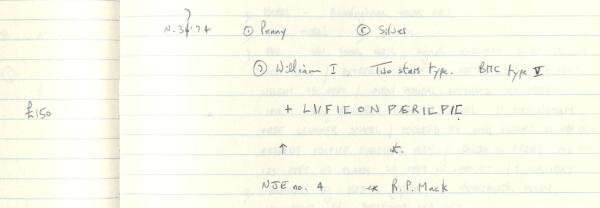 ?
N. 34.74 ① Penny ⑤ Silver
⑦ William I Two stars type. BMC type V
£150
+ LVFIC ON PÆREPIC
↑
NJE no. 4 ex R. P. Mack